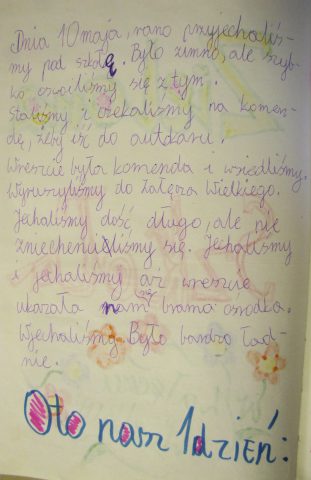 Dnia 10 maja, rano przyjechaliś-
my pod szkołę. Było zimno, ale szyb-
ko oswoiliśmy się z tym.
Staliśmy i czekaliśmy na komen-
dę, żeby iść do autokaru.
Wreszcie była komenda i wsiedliśmy.
Wyruszyliśmy do Załęcza Wielkiego.
Jechaliśmy dość długo, ale nie
zniechęciliśmy się. Jechaliśmy
i jechaliśmy aż wreszcie
ukazała nam się brama ośrodka.
Wjechaliśmy. Było bardzo ład-
nie.
Oto nasz 1 dzień: